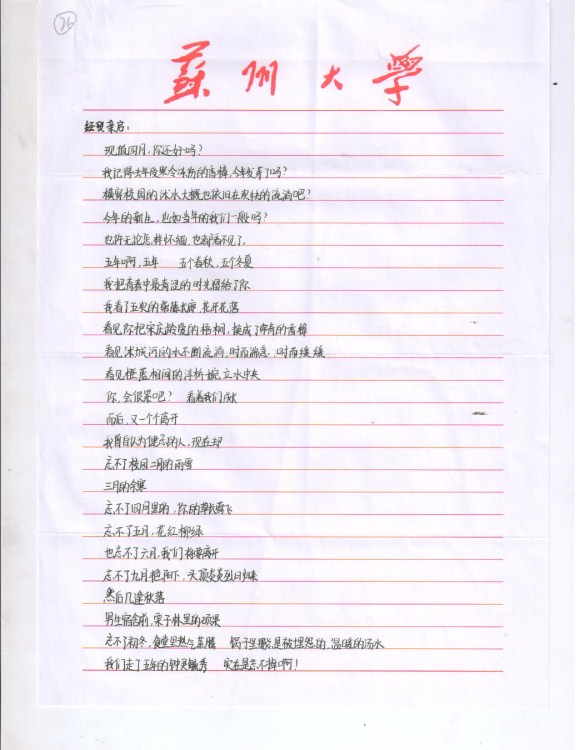 26
蘇州大學
亲启:
现值四月,你还好吗?
我记得去年夜寒冷冻伤的香樟,今年发芽了吗?
横穿校园的沭水大概也依旧在欢快的流淌吧?
今年的新生,也如当年的我们一般吗?
也许无论怎样怀缅,也都看不见了。
五年啊,五年 五个春秋,五个冬夏
我把青春中最青涩的时光留给了你
我看了五次的紫藤长廊,花开花落
看见你把梧桐,换成了年青的香樟
看见城河的水不断流淌,时而湍急,时而缓缓
看见橙蓝相间的浮桥,立水中央
你,会很累吧? 看着我们成长
而后,又一个个离开
我曾自认为健忘的人,现在却
忘不了校园二月的雨雪
三月的余寒
忘不了四月里的,你的草长莺飞
忘不了五月,花红柳绿
也忘不了六月,我们将要离开
忘不了九月艳阳下,头顶炎炎烈日归来
然后几逢秋落
男生宿舍前,栗子林里的硕果
忘不了初冬,食堂里热气蒸腾 锅子里是被埋怨的,温暖的汤水
我们走了五年的钟灵毓秀 实在是忘不掉啊!